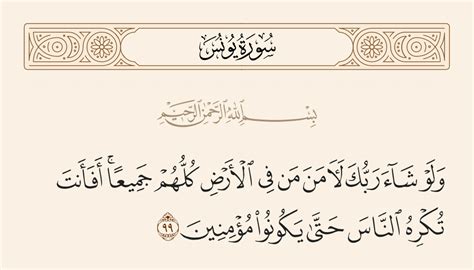 سُورَةُ يُونُسَ
بِسْمِ ٱللَّهِ ٱلرَّحْمَٰنِ ٱلرَّحِيمِ
وَلَوْ شَآءَ رَبُّكَ لَأٓمَنَ مَن فِى ٱلْأَرْضِ كُلُّهُمْ جَمِيعًا ۚ أَفَأَنتَ
تُكْرِهُ ٱلنَّاسَ حَتَّىٰ يَكُونُوا۟ مُؤْمِنِينَ ٩٩